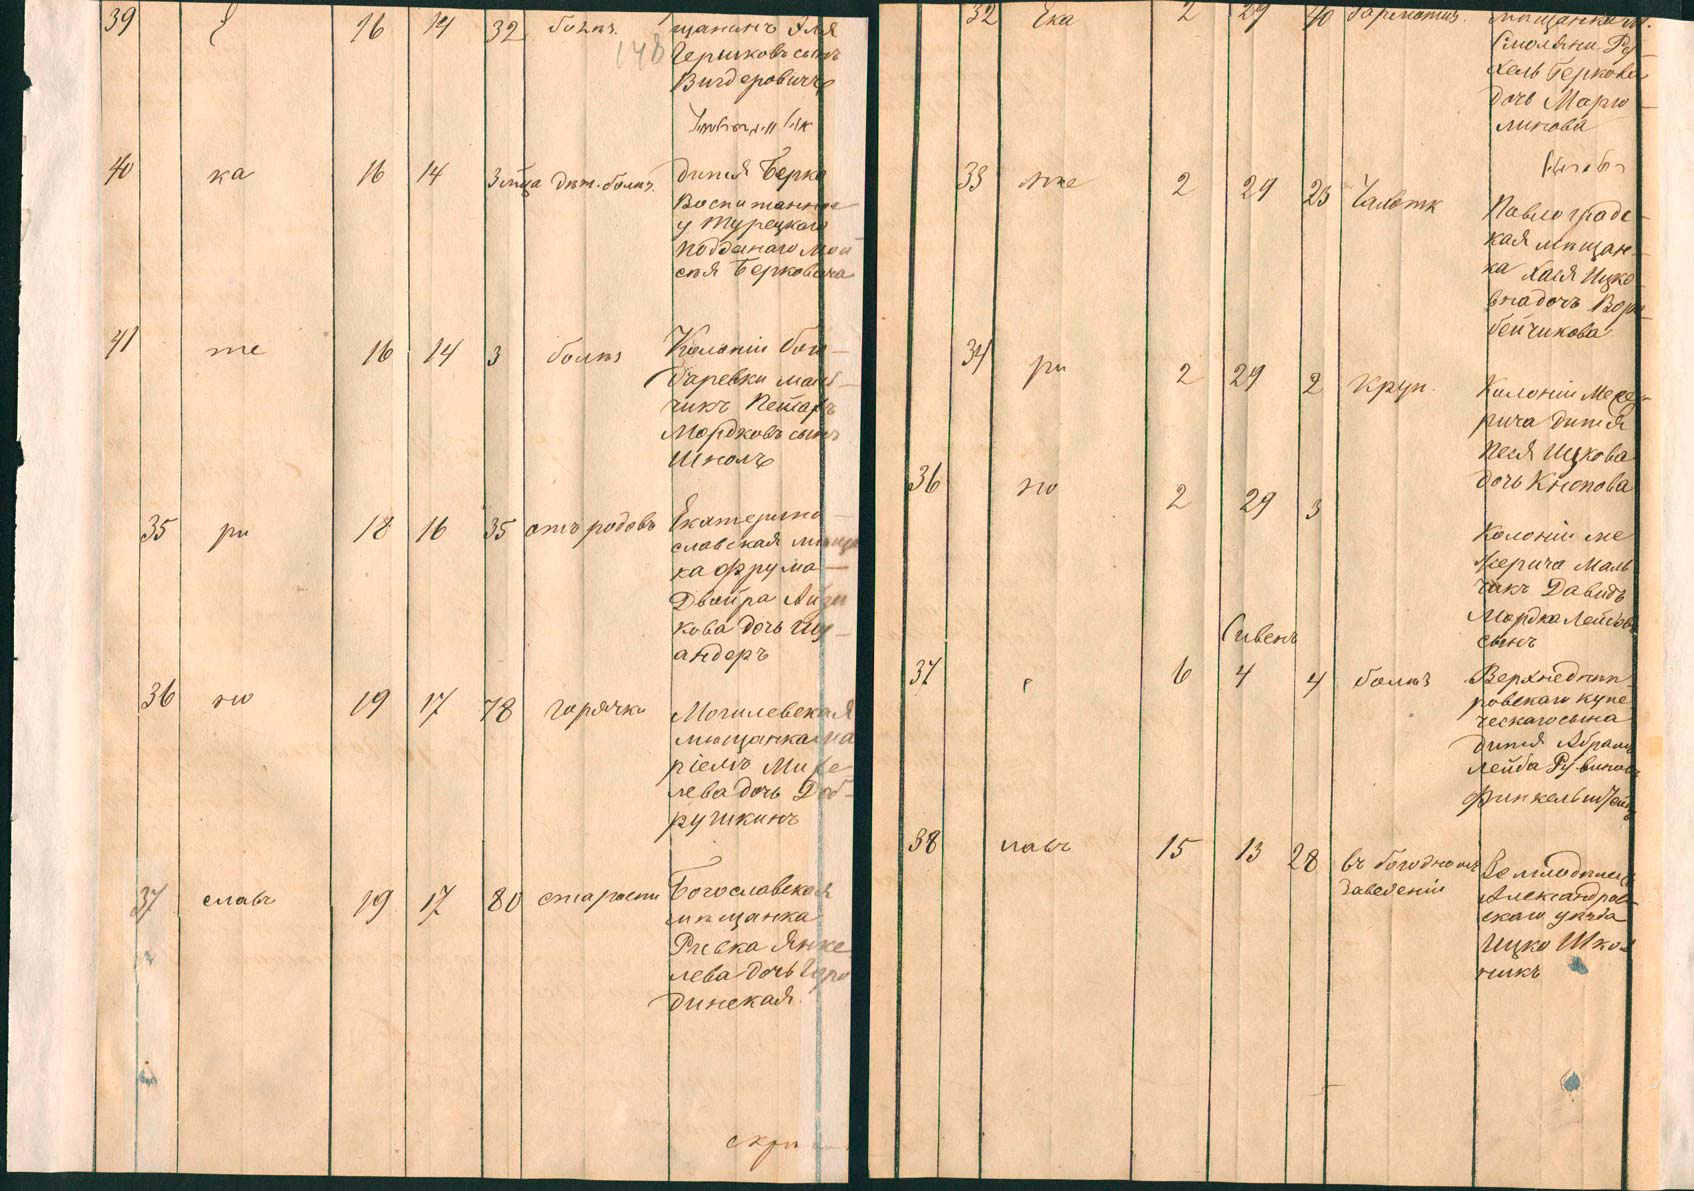 39 16 14 32 болѣз. щанинъ Эля
148
Гершковъ сынъ
Вигдеровичъ
40 ка 16 14 3 м-ца дѣт. болѣз. дитя Берко
Воспитанное
у Турецкого
подданаго Мой
сея Берковича
41 те 16 14 3 болѣз Колоніи бон-
даревки маль-
чикъ
Мордковъ сынъ
Школь
35 ри 18 16 35 отъ родовъ Екатерино-
славская мѣщан
ка Фрума-
Двойра Айзи
кова дочь
андеръ
36 но 19 17 78 горячки Могилевская
мѣщанка Ма
ріемъ
лева дочь Доб-
рушкинъ
37 славъ 19 17 80 старости Богославская
мѣщанка
Ривка Янке
лева дочь Горо
динская
скрѣ
32 чка 2 29 40 мѣщанка
Смоляни Ру
хель Беркова
дочь Марго
линова
33 2 29 23 Чахотк Павлоградс-
кая мѣщан-
ка Хася Ицко
вна дочь Воро-
бейчикова
34 ри 2 29 2 Круп. Колоніи Меже-
рича дитя
Песя Ицкова
дочь Кнопова
36 но 2 29 3 Колоніи ме
жерича маль
чикъ Давидъ
Мордка Лейбовъ
сынъ
Сивенъ
37 6 4 4 болѣз Верхнеднѣп-
ровскаго купе
ческаго сына
дитя Абрамъ
Лейба Рувиновъ
Финкельштейнъ
38 славъ 15 13 28 въ богоугодномъ
заведеніи
Земледѣлецъ
Александров-
скаго уѣзда
Ицко Школ
никъ